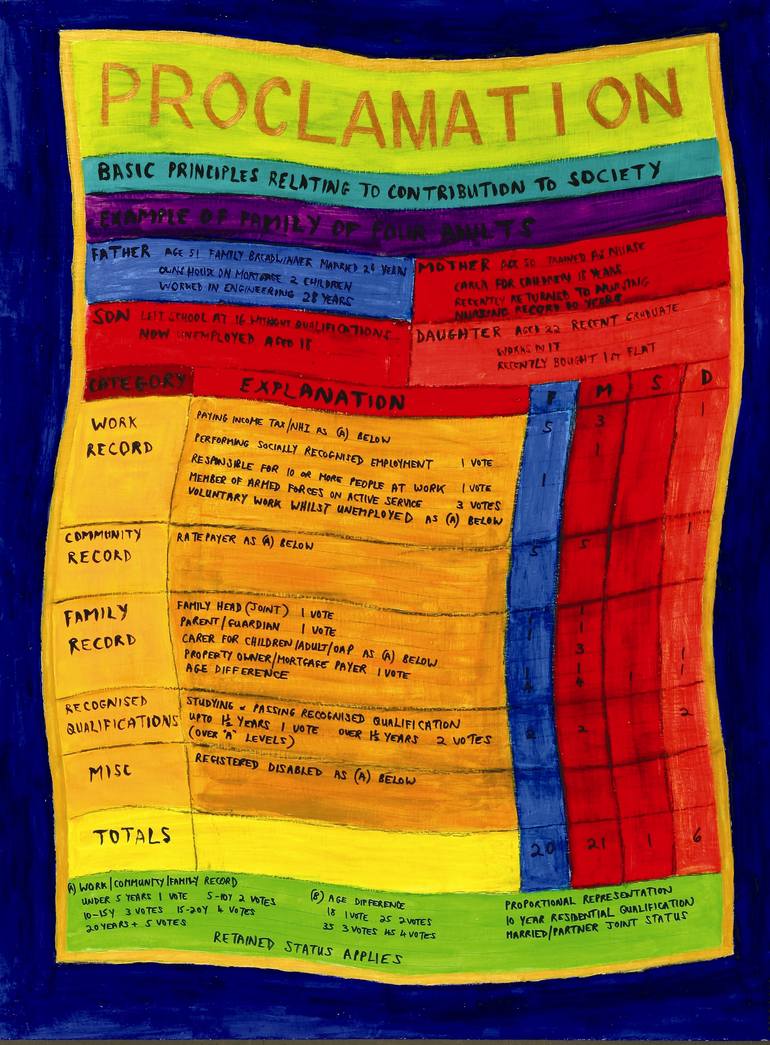 PROCLAMATION
BASIC PRINCIPLES RELATING TO CONTRIBUTION TO SOCIETY
EXAMPLE OF FAMILY OF FOUR ADULTS
FATHER AGE 51 FAMILY BREADWINNER MARRIED 24 YEARS
OWN HOUSE ON MORTGAGE 2 CHILDREN
WORKED IN ENGINEERING 28 YEARS
MOTHER AGE 50 TRAINED AS NURSE
CARER FOR CHILDREN 18 YEARS
RECENTLY RETURNED TO NURSING
NURSING RECORD 10 YEARS
SON LEFT SCHOOL AT 16 WITHOUT QUALIFICATIONS
NOW UNEMPLOYED AGED 18
DAUGHTER AGED 22 RECENT GRADUATE
WORKS IN IT
RECENTLY BOUGHT 1ST FLAT
CATEGORY EXPLANATION F M S D
WORK RECORD
PAYING INCOME TAX/NHI AS (A) BELOW 5 3 1
PERFORMING SOCIALLY RECOGNISED EMPLOYMENT 1 VOTE 1
RESPONSIBLE FOR 10 OR MORE PEOPLE AT WORK 1 VOTE 1
MEMBER OF ARMED FORCES ON ACTIVE SERVICE 3 VOTES
VOLUNTARY WORK WHILST UNEMPLOYED AS (A) BELOW
COMMUNITY RECORD
RATEPAYER AS (A) BELOW 5 5 1
FAMILY RECORD
FAMILY HEAD (JOINT) 1 VOTE 1 1
PARENT/GUARDIAN 1 VOTE 1 1
CARER FOR CHILDREN/ADULT/OAP AS (A) BELOW 3
PROPERTY OWNER/MORTGAGE PAYER 1 VOTE 1 1 1
AGE DIFFERENCE 4 4 1 1
RECOGNISED QUALIFICATIONS
STUDYING & PASSING RECOGNISED QUALIFICATION
UPTO 1½ YEARS 1 VOTE OVER 1½ YEARS 2 VOTES 2 2 2
(OVER "A" LEVELS)
MISC
REGISTERED DISABLED AS (A) BELOW
TOTALS 20 21 1 6
(A) WORK/COMMUNITY/FAMILY RECORD
UNDER 5 YEARS 1 VOTE 5-10Y 2 VOTES
10-15Y 3 VOTES 15-20Y 4 VOTES
20 YEARS + 5 VOTES
(B) AGE DIFFERENCE
18 1 VOTE 25 2 VOTES
35 3 VOTES 45 4 VOTES
PROPORTIONAL REPRESENTATION
10 YEAR RESIDENTIAL QUALIFICATION
MARRIED/PARTNER JOINT STATUS
RETAINED STATUS APPLIES